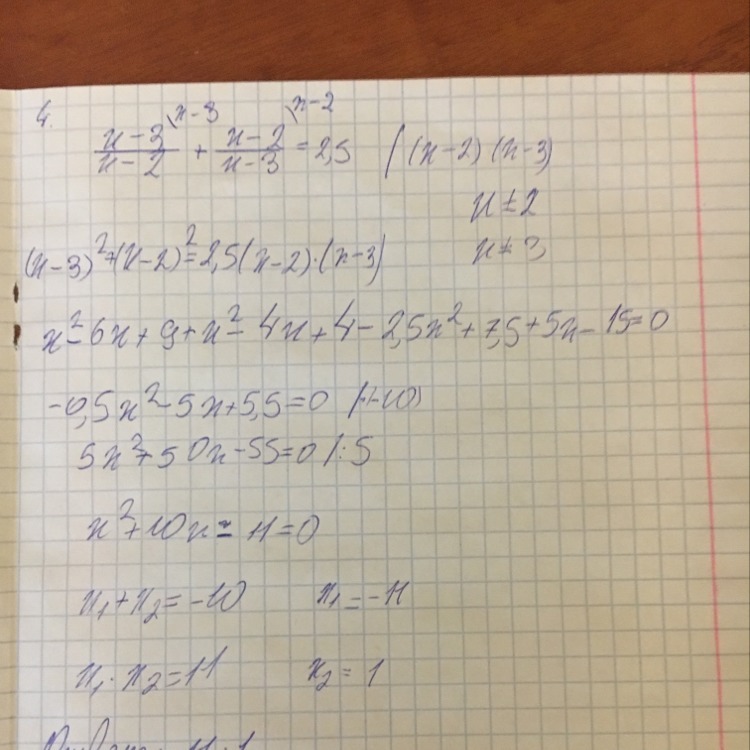 4.
(x-3)/(x-2) \x-3 + (x-2)/(x-3) \x-2 = 2,5 | (x-2)(x-3)
x ≠ 2
x ≠ 3
(x-3)²+(x-2)²=2,5(x-2)·(x-3)
x²-6x+9+x²-4x+4-2,5x²+7,5+5x-15=0
-0,5x²-5x+5,5=0 |·(-10)
5x²+50x-55=0 |:5
x²+10x-11=0
x₁+x₂=-10 x₁=-11
x₁·x₂=11 x₂=1